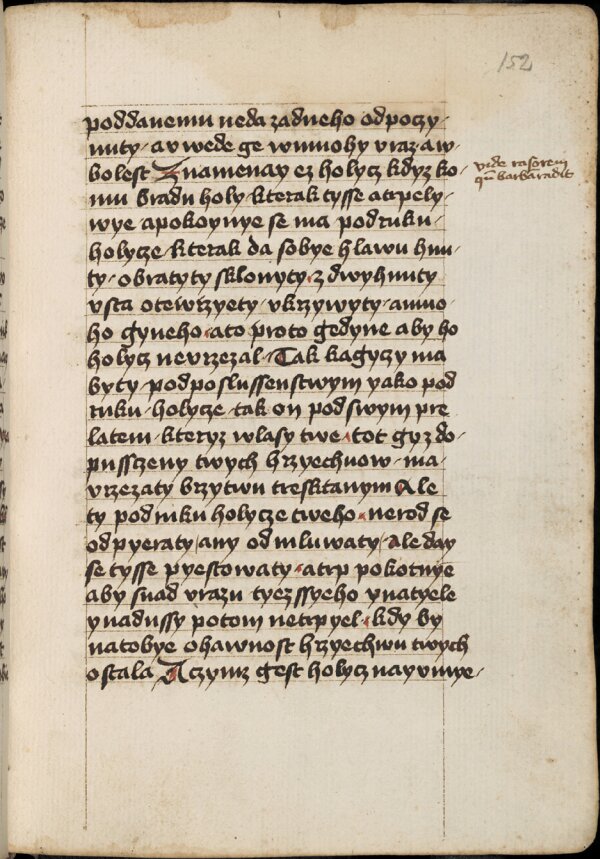 152
poddanemu neda zadneho odpoczy-
nuty · a vwede ge w mnohy vraz a w-
bolest Znamenay ez holycz kdyz ko-
mu bradu holy · kterak tysse a trpely-
wye a pokoynye se ma pod ruku ·
holycze · kterak da sobye hlawu hnu-
ty · obratyty sklonyty · zdwyhnuty
vsta otewrzyety · vkrzywyty · a mno-
ho gyneho · a to proto gedyne aby ho
holycz nevrzezal · Tak kagyczy ma
byty · pod poslussenstwym yako pod
ruku · holycze · tak on pod swym pre
latem · kteryz wlasy twe · tot gyz do-
pusszeny twych hrzyechuow · ma-
vrzezaty brzytwu tresktanym Ale
ty pod ruku holycze tweho · nerod se
odpyeraty any odmluwaty · Ale day
se tysse pyestowaty · a trp pokornye
aby snad vrazu tyezssyeho ynatyele
ynadussy potom netrpyel · kdy by
na tobye ohawnost hrzyechuw twych
ostala Aczymz gest holycz nayvmye-
vide rasorem
qui barbam radit